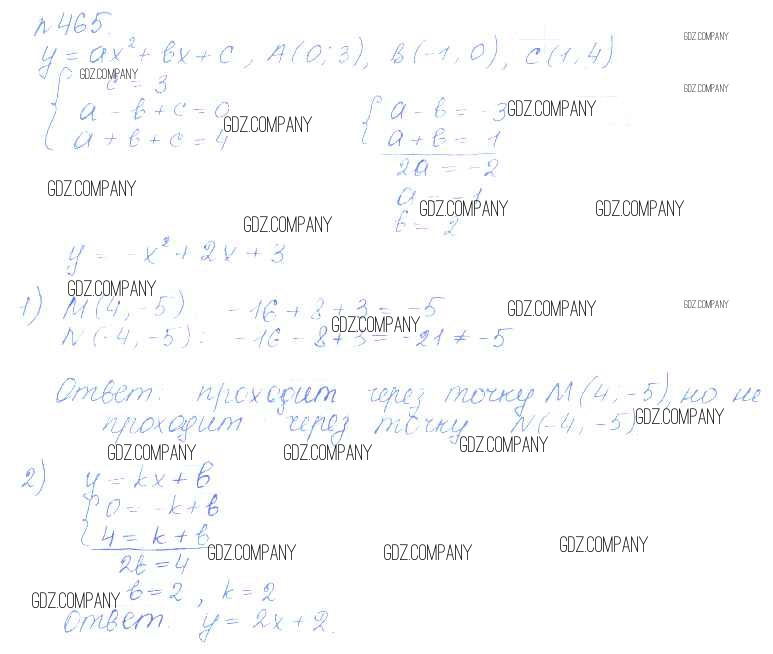 №465.
y = ax² + bx + c, A(0; 3), B(-1, 0), C(1, 4)
GDZ.COMPANY
GDZ.COMPANY
c = 3
GDZ.COMPANY
a - b + c = 0
a - b = -3 GDZ.COMPANY
GDZ.COMPANY
a + b + c = 4
a + b = 1
2a = -2
GDZ.COMPANY
a = -1
GDZ.COMPANY GDZ.COMPANY
GDZ.COMPANY
b = 2
y = -x² + 2x + 3
GDZ.COMPANY
1) M(4, -5): -16 + 8 + 3 = -5
GDZ.COMPANY GDZ.COMPANY
GDZ.COMPANY
N(-4, -5): -16 - 8 + 3 = -21 ≠ -5
Ответ: проходит через точку M(4; -5), но не
проходит через точку N(-4, -5)
GDZ.COMPANY
GDZ.COMPANY GDZ.COMPANY GDZ.COMPANY
2) y = kx + b
0 = -k + b
4 = k + b
GDZ.COMPANY GDZ.COMPANY GDZ.COMPANY
2b = 4
b = 2, k = 2
GDZ.COMPANY
Ответ. y = 2x + 2.